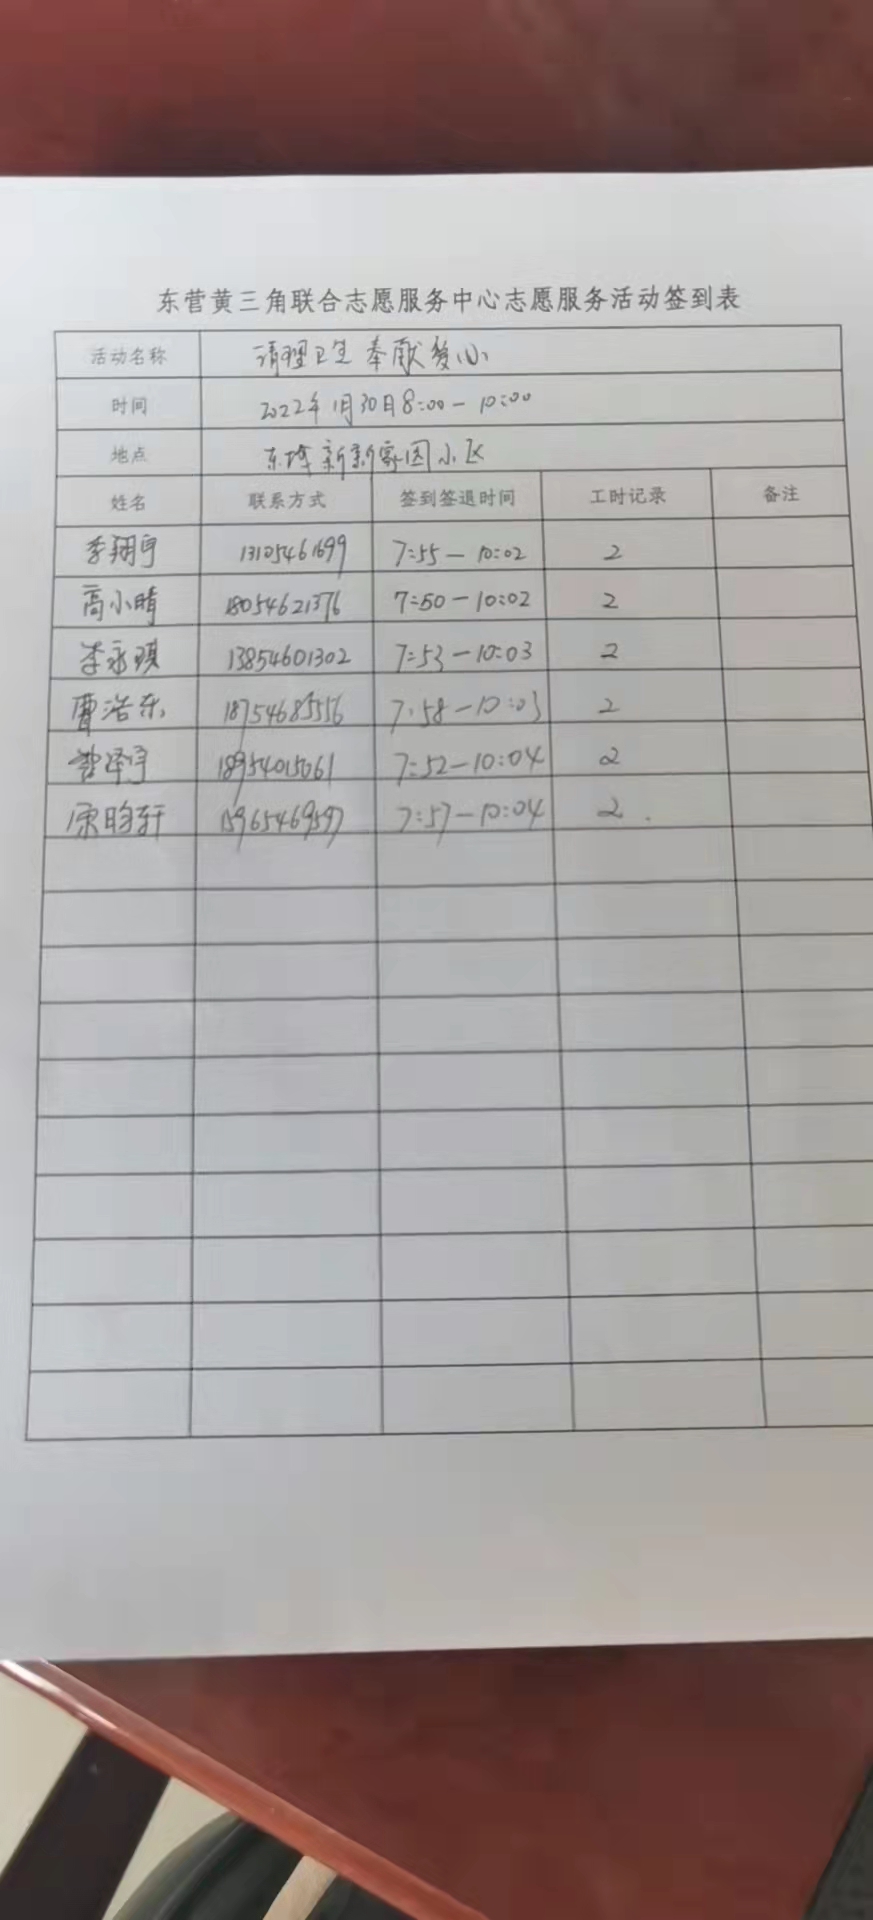 东营黄三角联合志愿服务中心志愿服务活动签到表
活动名称 清理卫生 奉献爱心
时间 2022年1月30日8:00-10:00
地点 东城新新家园小区
姓名 联系方式 签到签退时间 工时记录 备注
李翔宇 13105461699 7:55-10:02 2
高小晴 18054621376 7:50-10:02 2
李永琪 13854601302 7:53-10:03 2
曹浩东 18754685556 7:58-10:03 2
泽宇 18954015061 7:52-10:04 2
15965469597 7:57-10:04 2